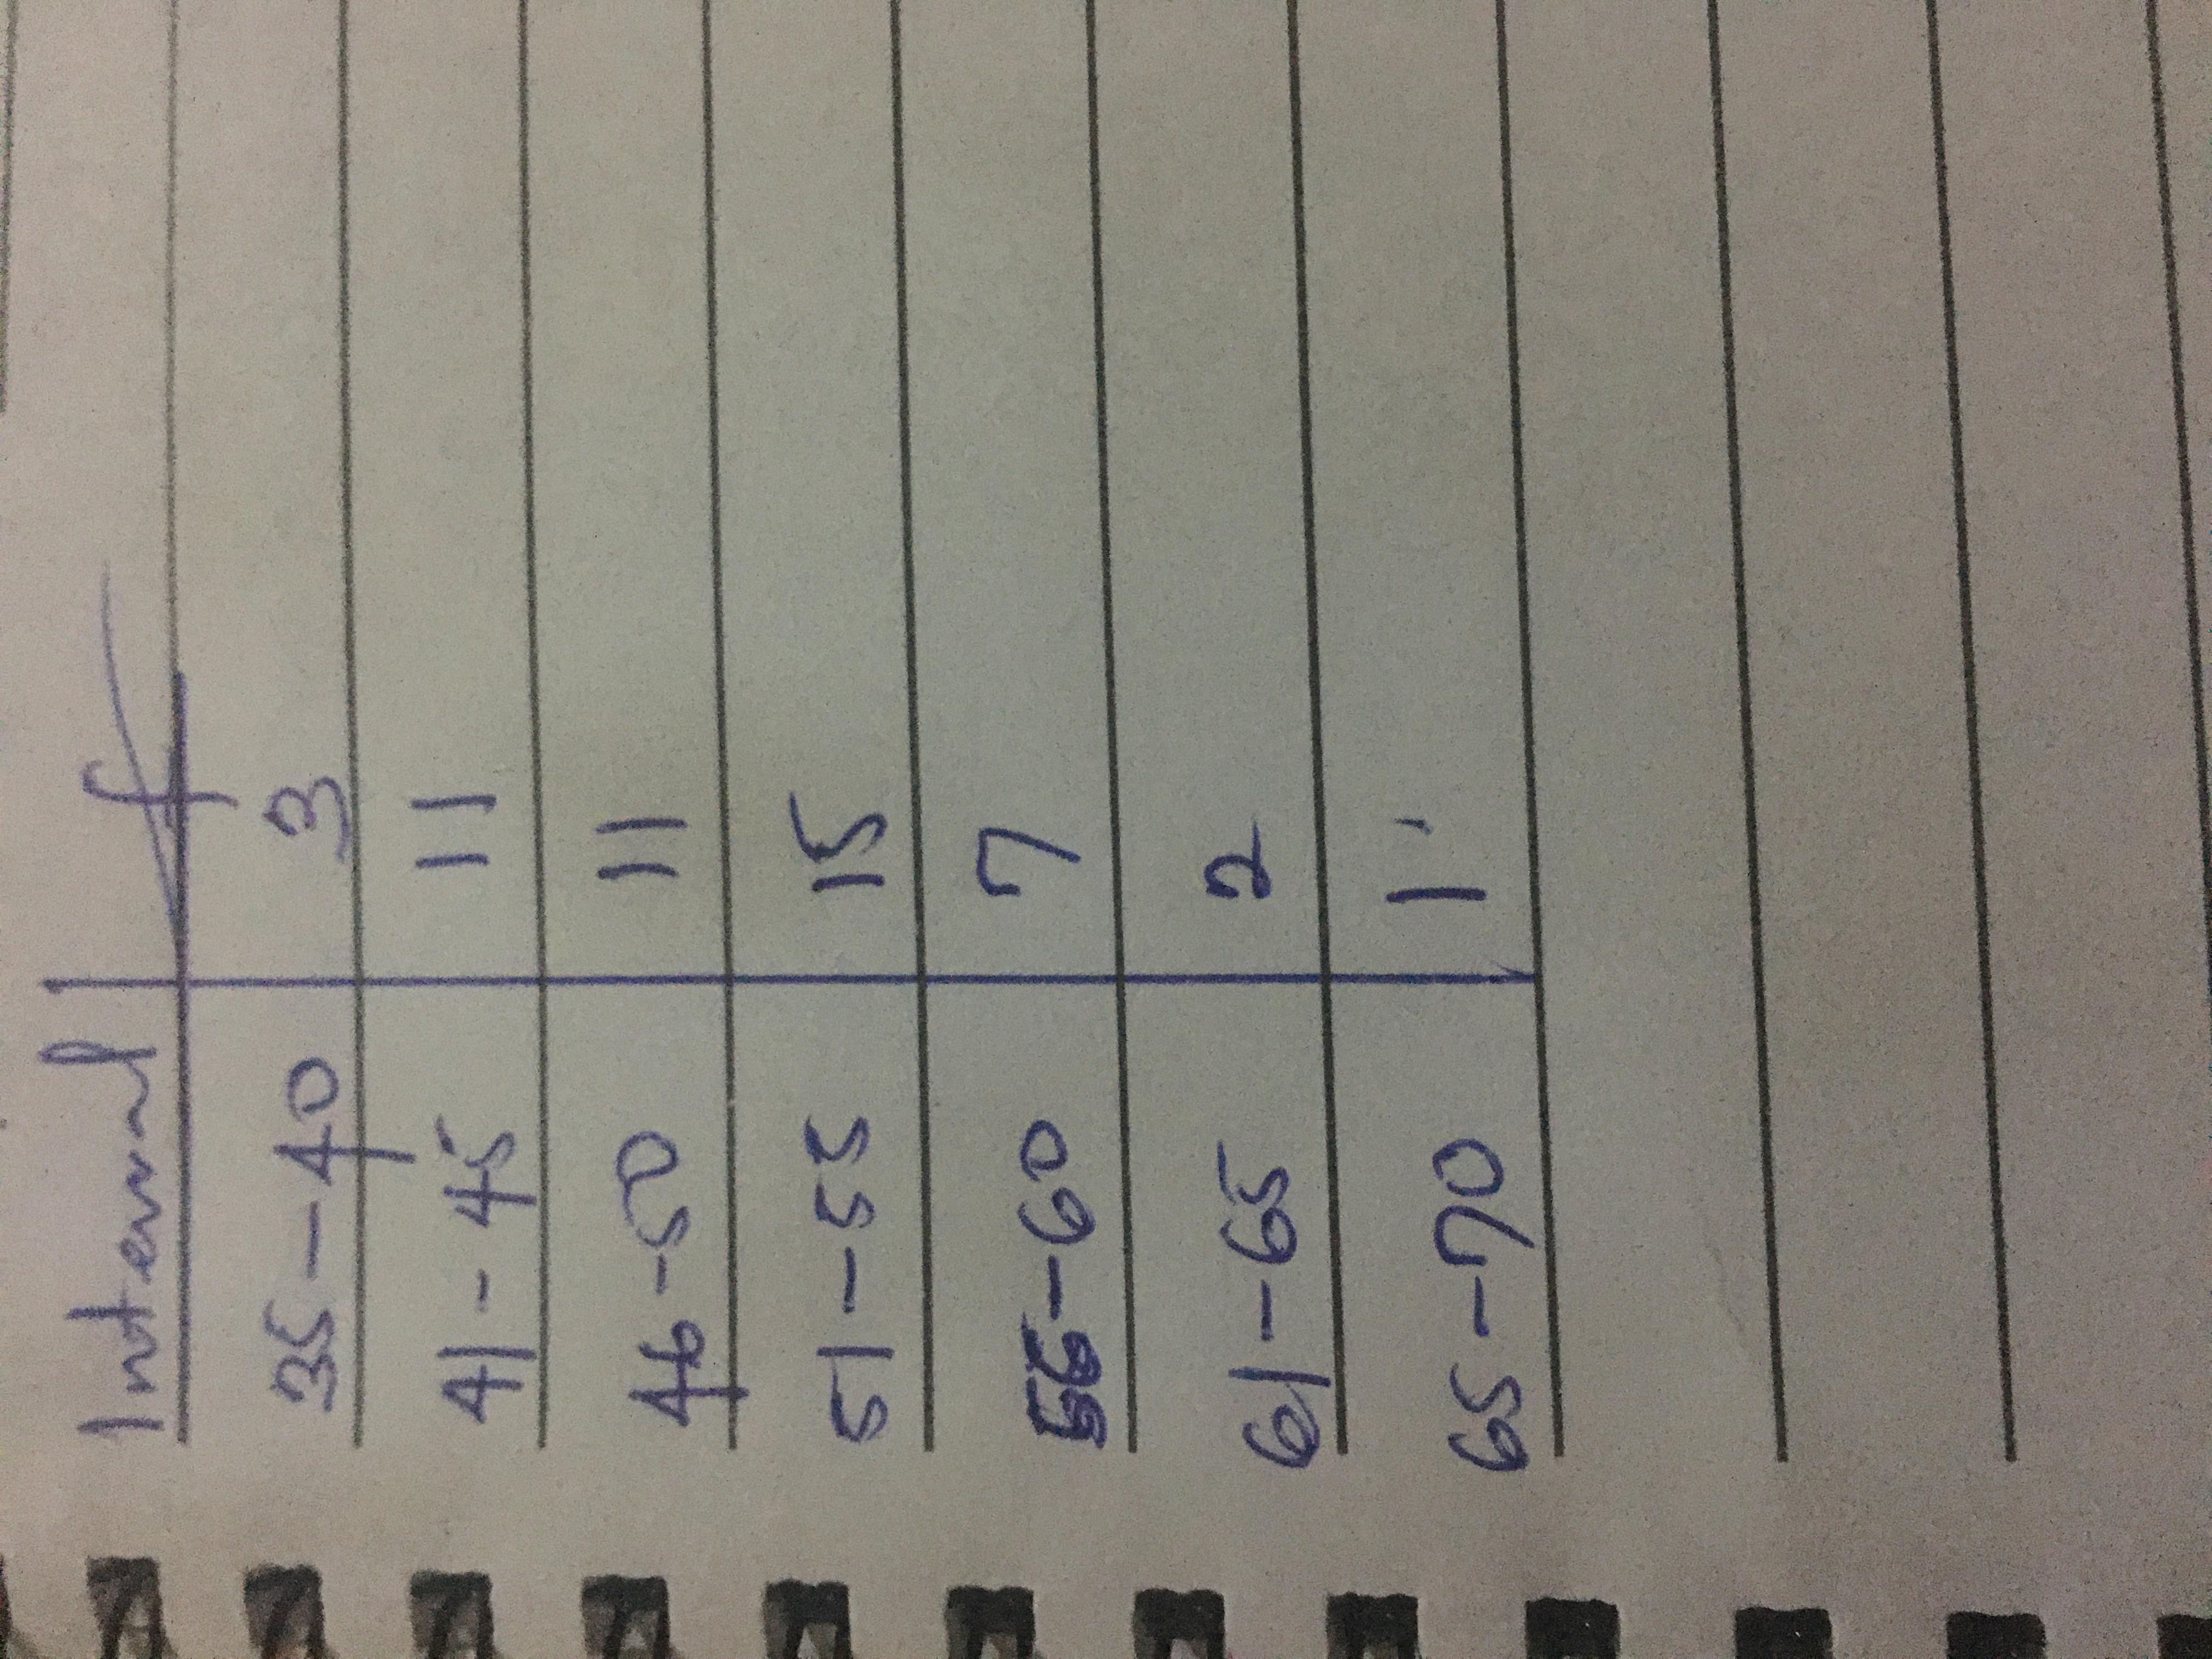 Interval f
35-40 3
41-45 11
46-50 11
51-55 15
56-60 7
61-65 2
65-70 1